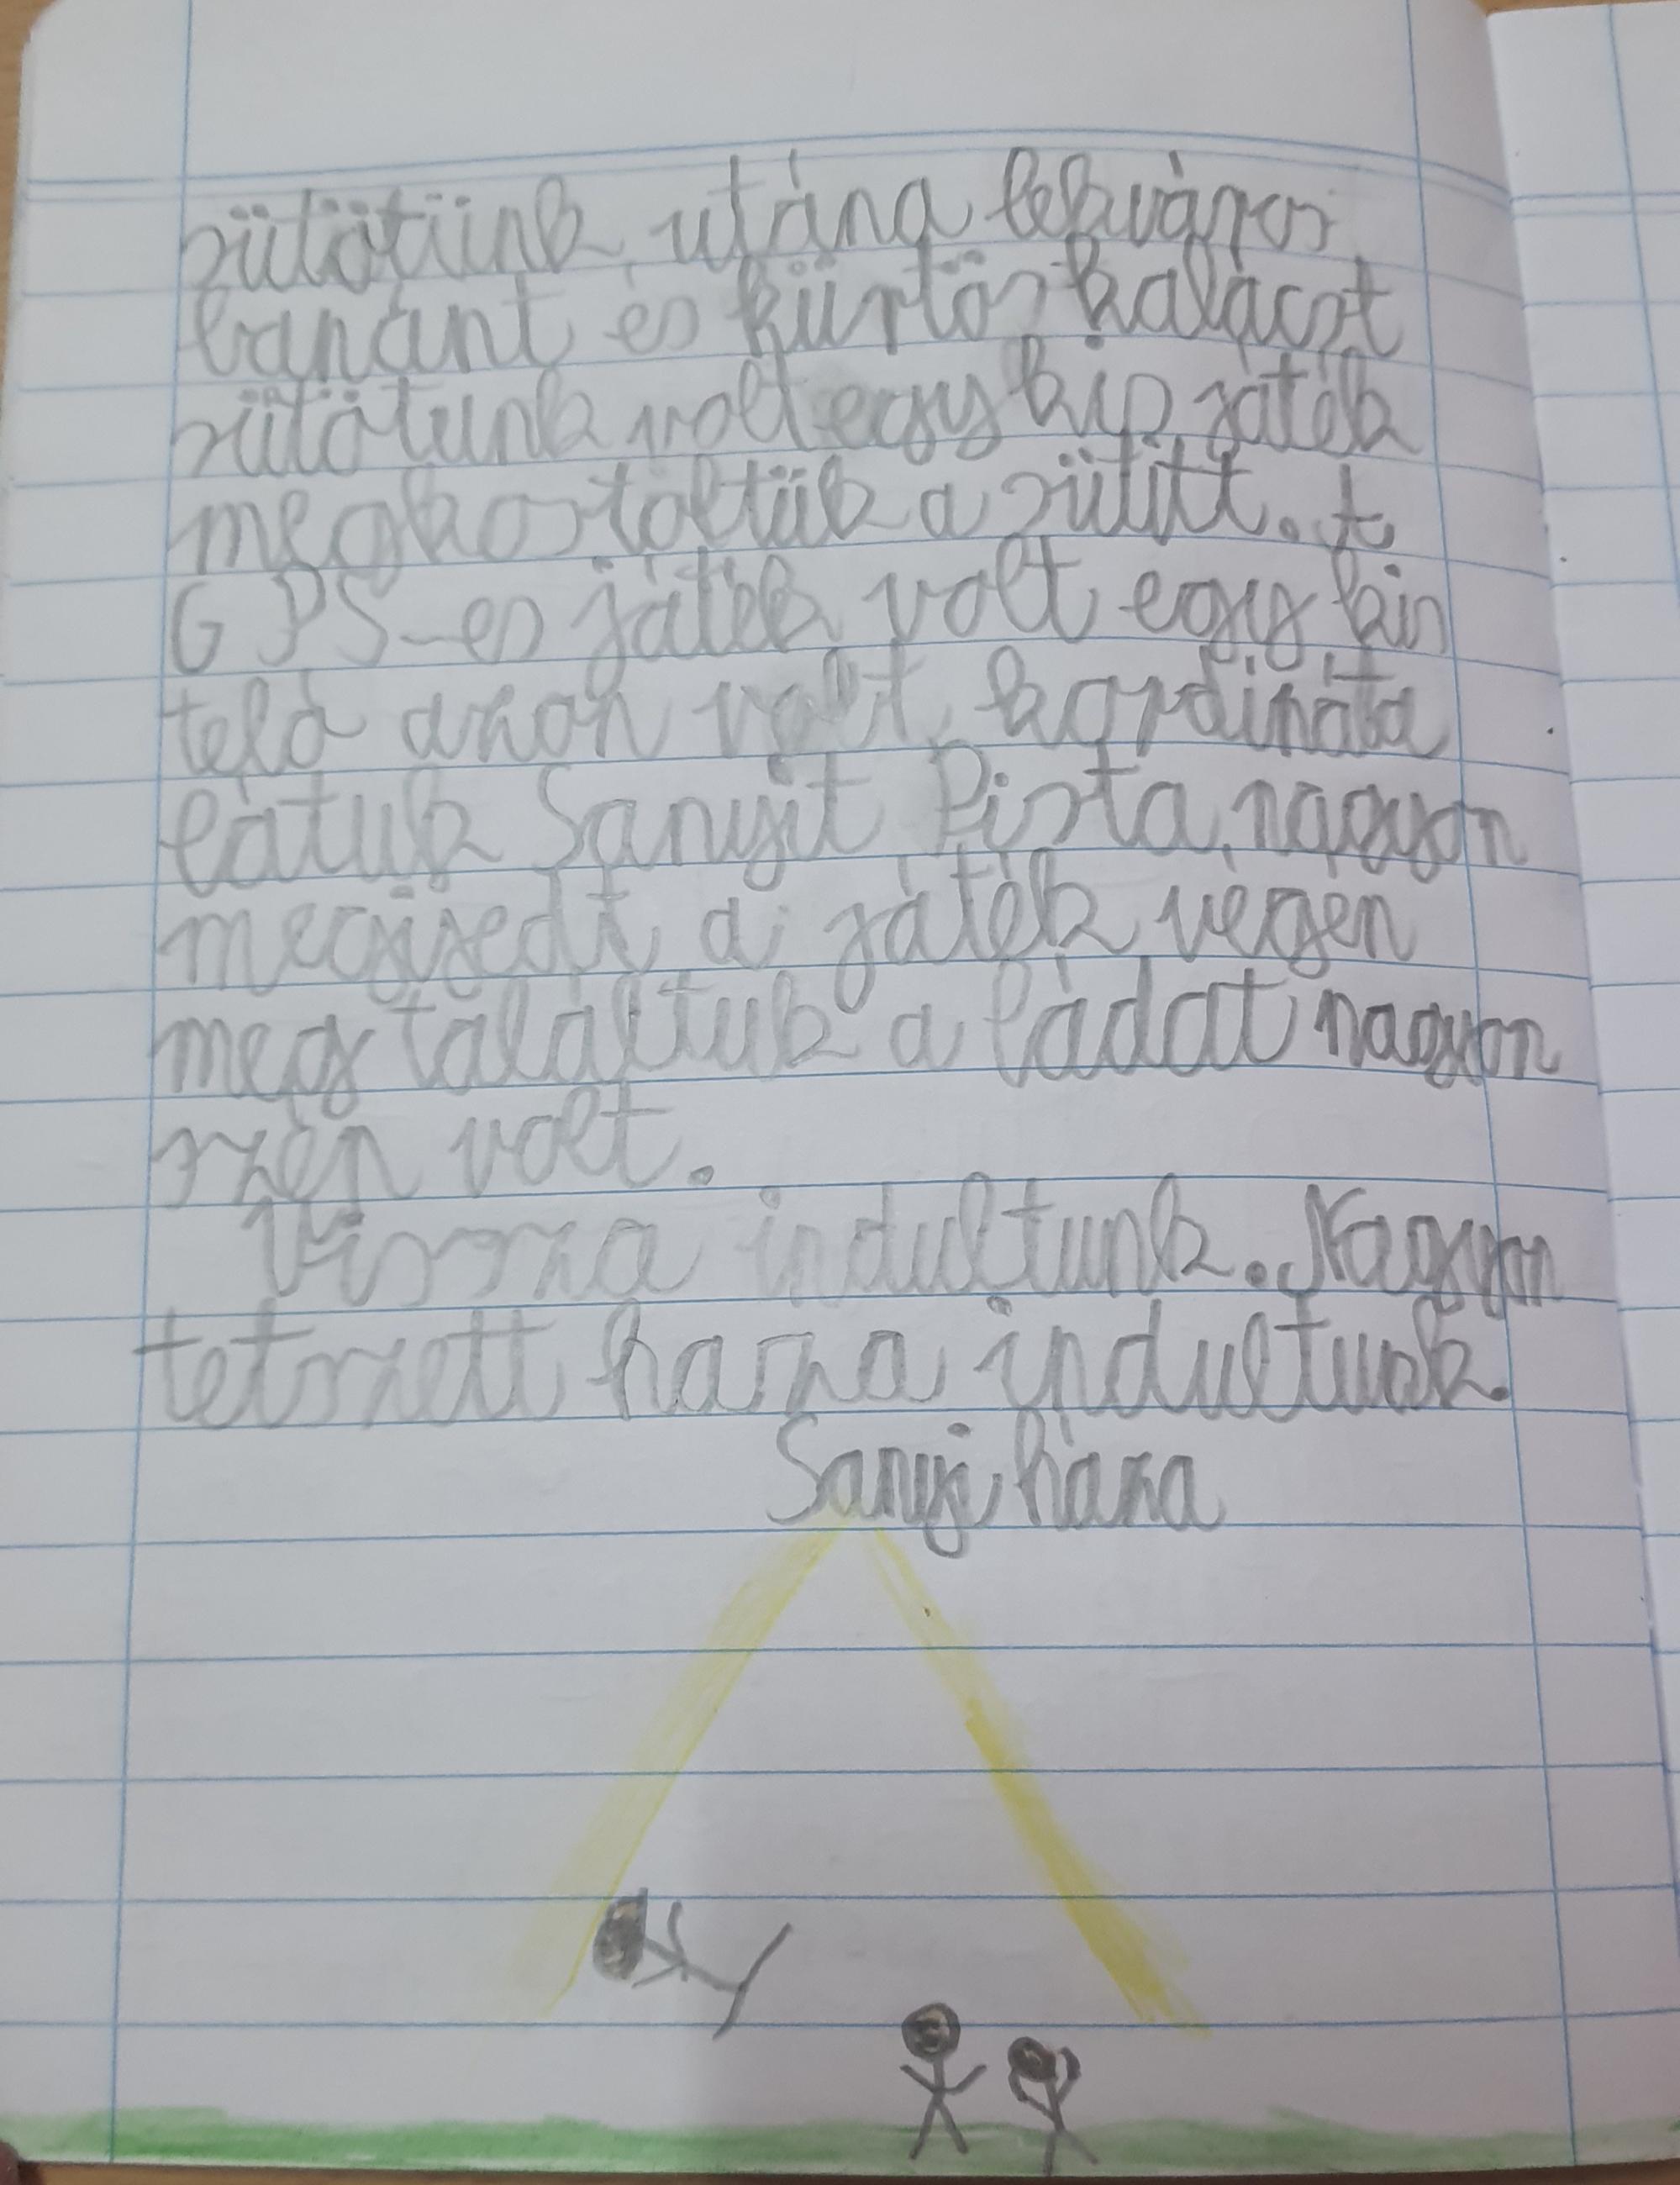 sütötünk, utána lekváros
banánt és kürtöskalácst
sütötunk volt egy kis játék
megkostoltük a sütitt. A
GPS-es játék volt egy kis
teló azon volt kordináta
látuk Sanyit Pista nagyon
megijedt a játék végen
meg találaltuk a ládat nagyon
szép volt.
Vissza indultunk. Nagyon
tetszett haza indultunk.
Sanyi háza